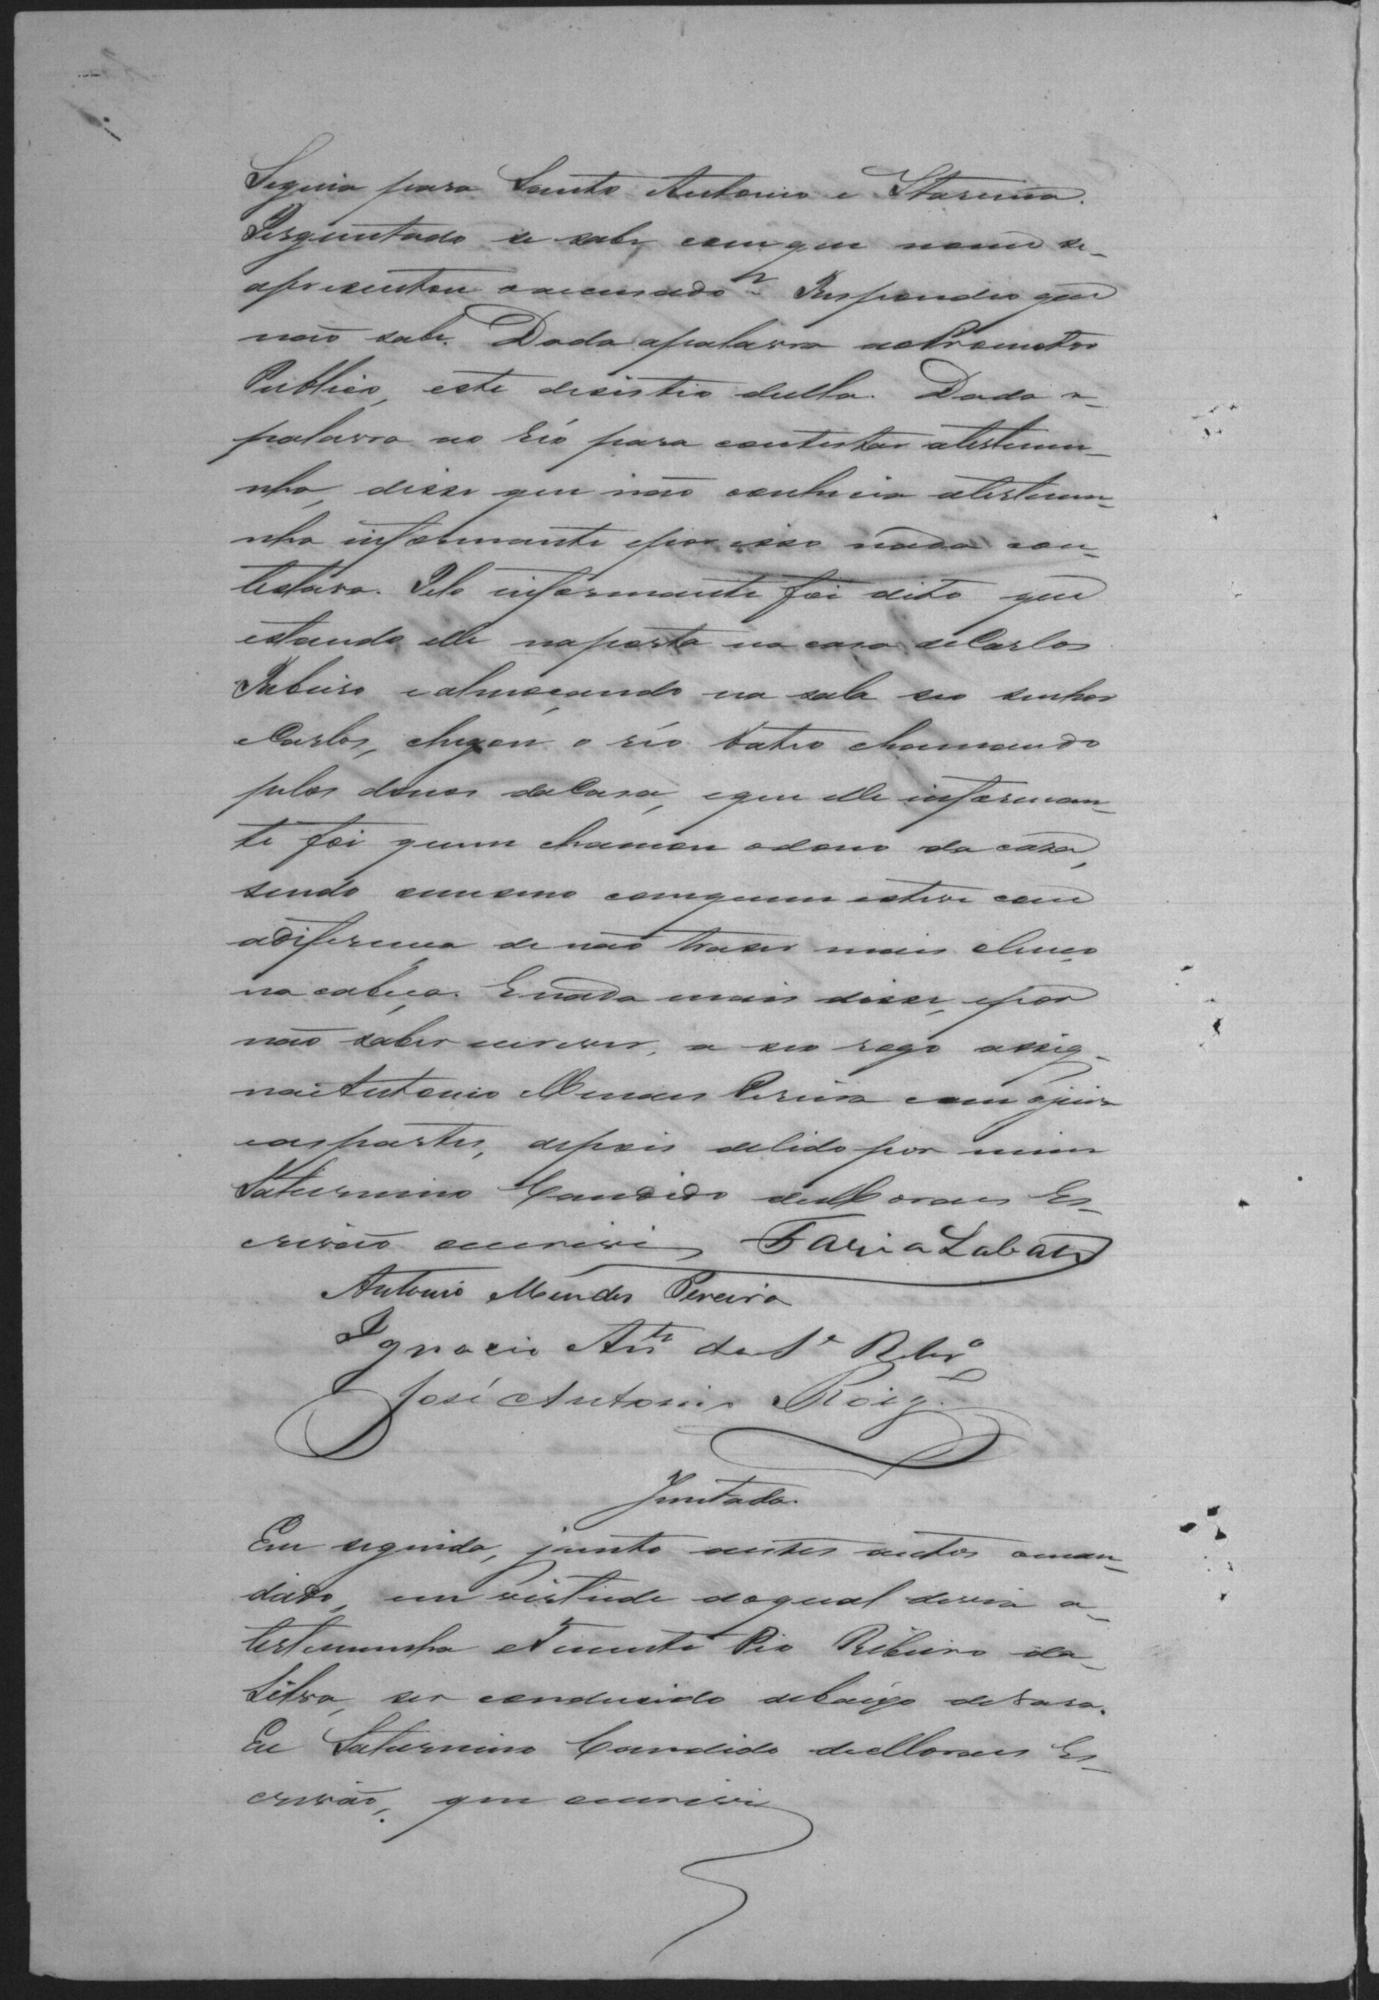 Seguia para Santo Antonio e Itaruna.
Perguntado se sabe com que nome se
apresentou o accusado? Respondeo que
não sabe. Dada a palavra ao Promotor
Publico, este desistio della. Dada a
palavra ao réo para contestar a testemu-
nha, disse que não conhecia a testemu-
nha informante e por isso nada con-
testava. Pelo informante foi dito que
estando elle na porta na casa de Carlos
Ribeiro e almoçando na sala seo senhor
Carlos, chegou o réo bateo chamando
pelos donos da Casa, e que elle informan-
te foi quem chamou o dono da casa,
sendo o mesmo com quem esteve com
a differença de não trazer mais lenço
na cabeça. E nada mais disse, e por
não saber escrever, a seo rogo assig-
na Antonio Mendes Pereira com o juiz
e as partes, depois de lido por mim
Saturnino Candido de Moraes Es-
crivão o escrevi Faria Lobato
Antonio Mendes Pereira
Ignacio Ant.º da S.ª Ribr.º
José Antonio Roiz
Juntada.
Em seguida, junto a estes autos o man-
dado, em virtude do qual devia a
testemunha Tenente Pio Ribeiro da
Silva, ser conduzido debaixo de vara.
Eu Saturnino Candido de Moraes Es-
crivão, que o escrevi